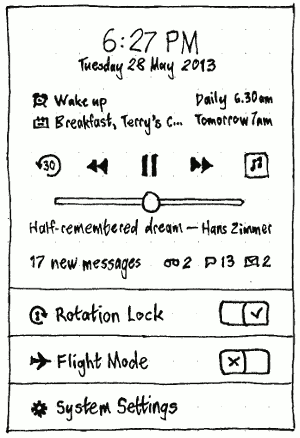 6:27 PM
Tuesday 28 May 2013
Wake up Daily 6.30am
Breakfast, Terry's c... Tomorrow 7am
30
Half-remembered dream – Hans Zimmer
17 new messages 2 13 2
Rotation Lock
Flight Mode
System Settings